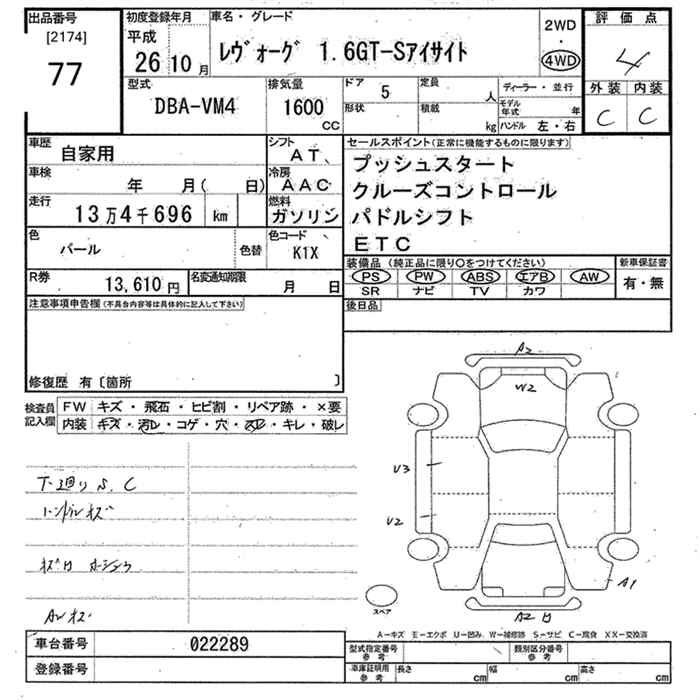 出品番号
[2174]
77
初度登録年月
平成
26 10 月
車名・グレード
レヴォーグ 1.6GT-Sアイサイト
2WD
・
4WD
評価点
4
外装 内装
C C
型式
DBA-VM4
排気量
1600
CC
ドア 5
形状
定員 人
積載 kg
ディーラー・並行
モデル年式 年
ハンドル 左・右
車歴 自家用
車検 年 月( 日)
走行 13万4千696 km
色 パール 色替
シフト AT、
冷房 AAC
燃料 ガソリン
色コード K1X
セールスポイント(正常に機能するものに限ります)
プッシュスタート
クルーズコントロール
パドルシフト
ETC
R券 13,610 円
名変通知期限 月 日
装備品 (純正品に限り○をつけてください)
PS PW ABS エアB AW
SR ナビ TV カワ
新車保証書
有・無
注意事項申告欄(不具合内容等は具体的に記入して下さい)
後日品
修復歴 有〔箇所 〕
検査員記入欄
FW キズ・飛石・ヒビ割・リペア跡・×要
内装 キズ・汚レ・コゲ・穴・スレ・キレ・破レ
下廻り S、C
ハンドルキズ
A2
W2
U3
U2
A1
A2
スペア
A-キズ E-エクボ U-凹み W-補修跡 S-サビ C-腐食 XX-交換済
車台番号 022289
登録番号
型式指定番号 参考
類別区分番号 参考
車庫証明用 参考
長さ cm 幅 cm 高さ cm